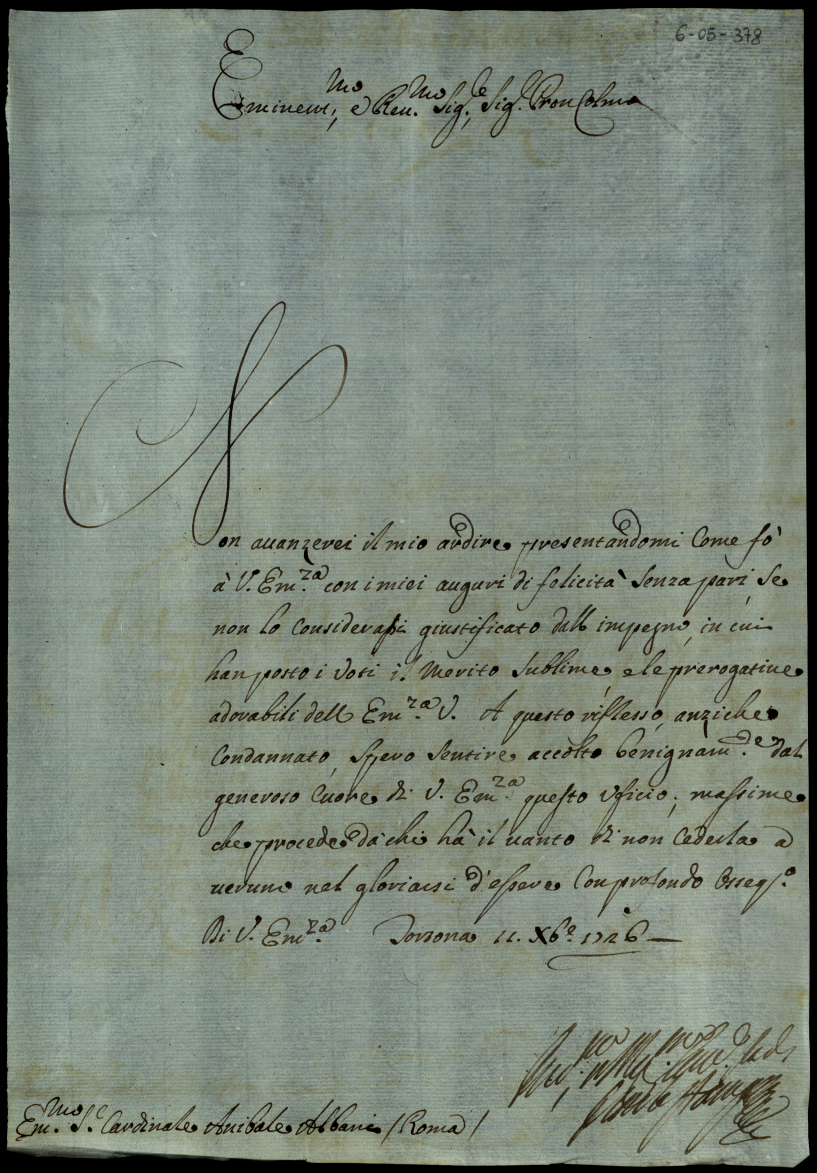 6-05-378
Eminent.mo, e Reu.mo Sig.e, Sig.e Pron Colmo
Non auanzerei il mio ardire presentandomi Come fò
à V. Em.za con i miei auguri di felicità senza pari, se
non lo Considerassi giustificato dall impegno, in cui
han posto i Voti il Merito sublime, e le prerogatiue
adorabili dell Em.za V. A questo riflesso, anziche
Condannato, spero sentire accolto benignam.te dal
generoso Cuore di V. Em.za questo Vficio; massime
che procede da chi hà il uanto di non Cederla a
ueruno nel gloriarsi d'essere Con profondo Osseq.o
Di V. Em.za Tortona 11. Xb.e 1726
Em.mo S.r Cardinale Anibale Albani / Roma /